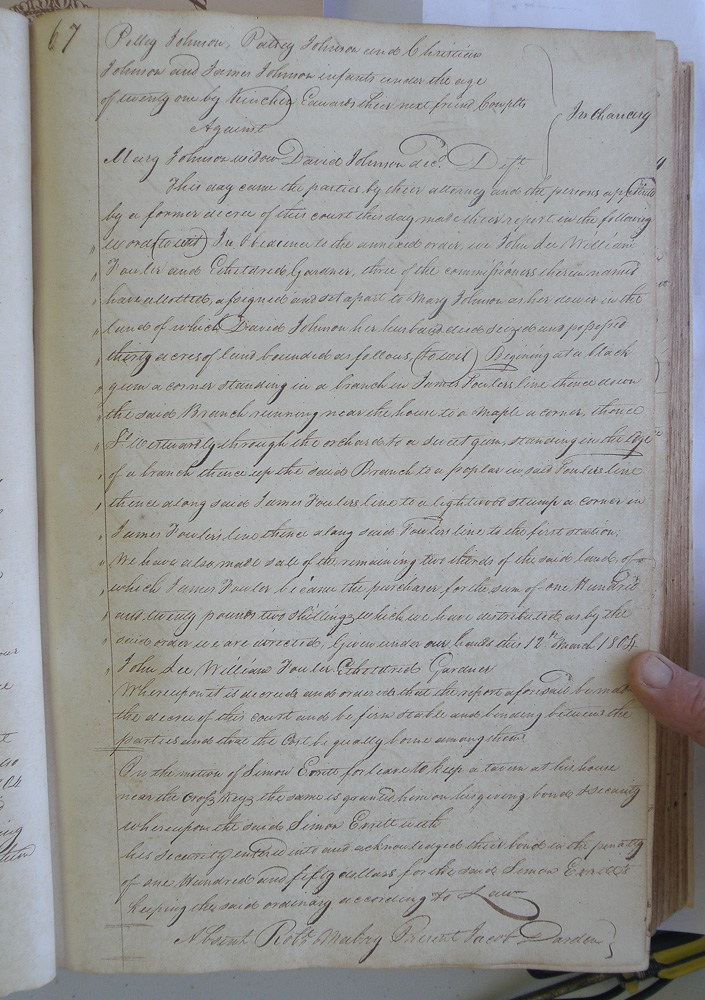 67
Polley Johnson, Patsey Johnson and Christian
Johnson and James Johnson infants under the age
of twenty one by Kinchen Edwards their next friend Complts
In Chancery
Against
Mary Johnson widow David Johnson decd. Deft
This day came the parties by their attorney and the persons appointed
by a former decree of this court this day made their report in the following
words (to wit) In Obedience to the annexed order, we John Lee William
Fowler and Etheldred Gardner, three of the commissioners therein named
have allotted, assigned and set apart to Mary Johnson as her dower in the
land of which David Johnson her husband died seized and possessed
thirty acres of land bounded as follows, (to wit) Begining at a black
gum a corner standing in a branch in James Fowlers line thence down
the said Branch running near the house to a maple a corner, thence
So. Westwardly through the orchard to a sweet gum, standing in the edge
of a branch thence up the said Branch to a poplar in said Fowlers line
thence along said James Fowlers line to a lightwood stump a corner in
James Fowler's line thence along said Fowlers line to the first station.
We have also, made sale of the remaining two thirds of the said land, of
which James Fowler became the purchaser for the sum of one Hundred
and twenty pounds two shillings which we have distributed as by the
said order we are directed, Given under our hands this 12th March 1804
John Lee, William Fowler Etheldred Gardner
Whereupon it is decreed and ordered that the report aforesaid be made
the decree of this court and be firm stable and binding between the
parties and that the Cost be equally borne among them
On the motion of Simon Everitt for leave to keep a tavern at his house
near the Cross Keys the same is granted him on his giving bond & security
whereupon the said Simon Everitt with
his security entered into and acknowledged their bond in the penalty
of one Hundred and fifty dollars for the said Simon Everitt's
keeping the said ordinary according to Law
Absent Robt. Mabry Present Jacob Darden